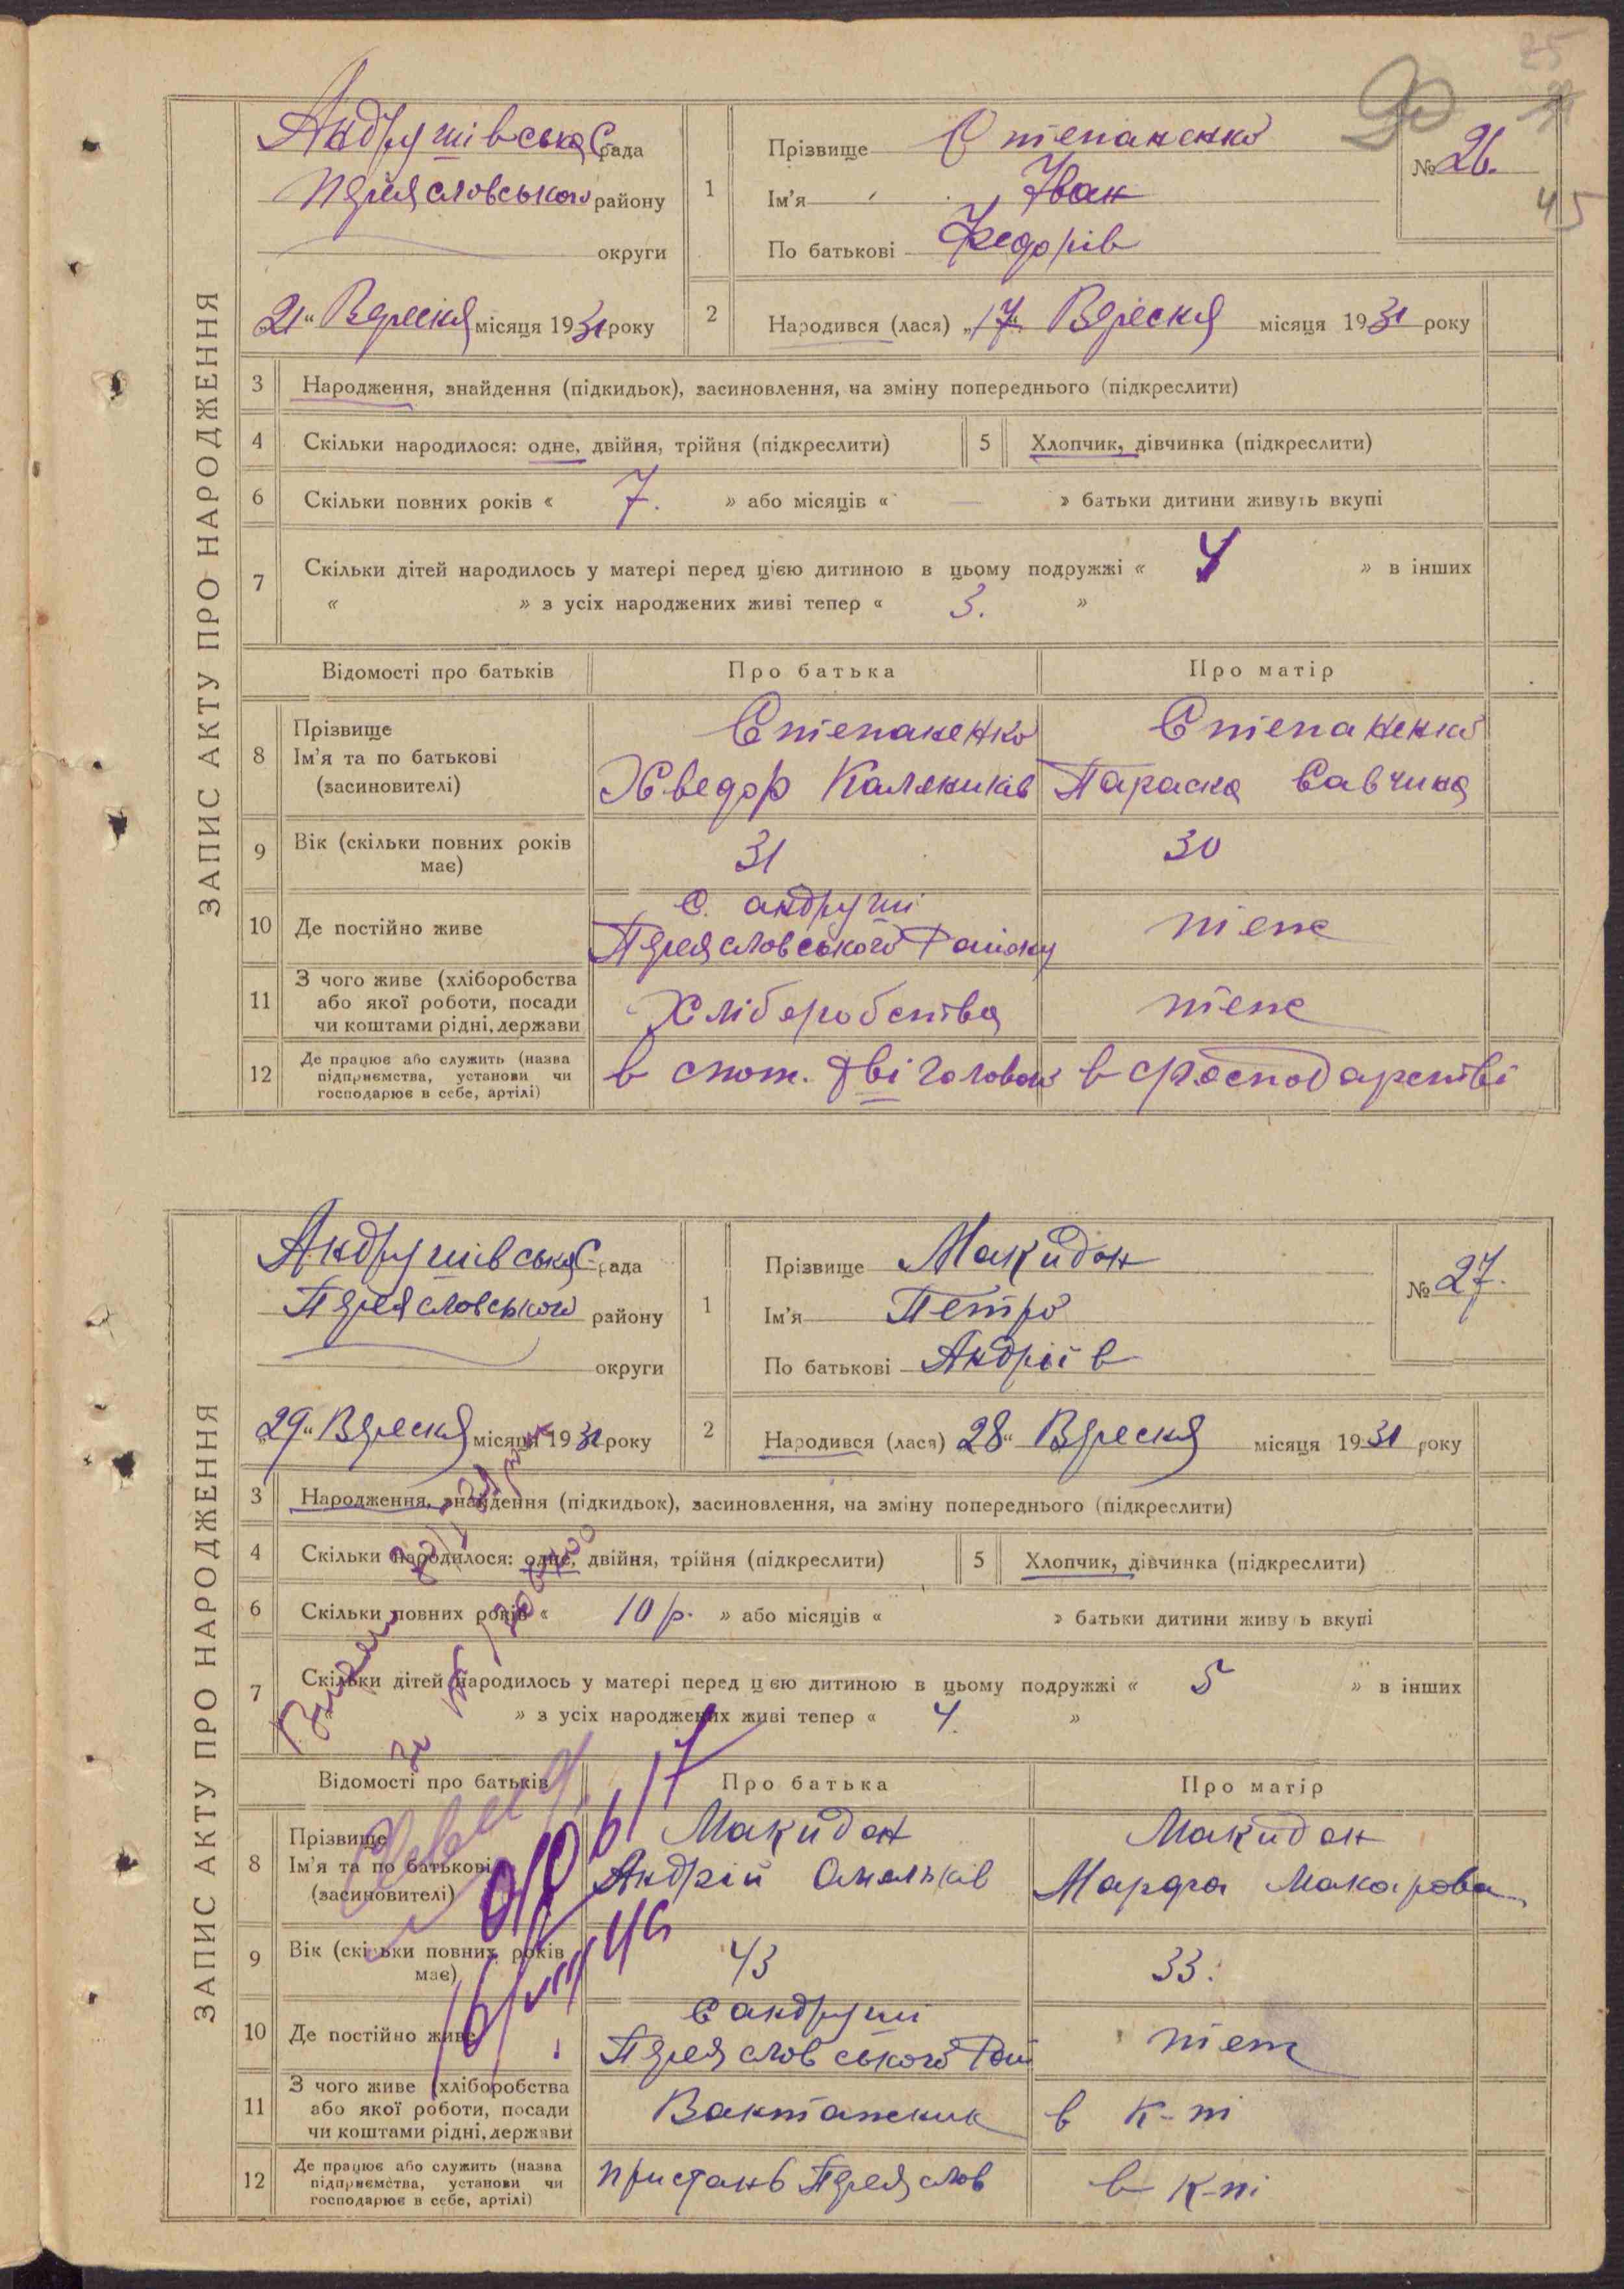 25
45
ЗАПИС АКТУ ПРО НАРОДЖЕННЯ
Андрушівська С рада
Переяславського району
округи
21" Вересня місяця 1931 року
1
Прізвище Степаненко
Ім'я Іван
По батькові Федорів
№ 26.
2
Народився (лася) „17" Вересня місяця 1931 року
3 Народження, знайдення (підкидьок), засиновлення, на зміну попереднього (підкреслити)
4 Скільки народилося: одне, двійня, трійня (підкреслити) 5 Хлопчик, дівчинка (підкреслити)
6 Скільки повних років « 7. » або місяців « — » батьки дитини живуть вкупі
7 Скільки дітей народилось у матері перед цією дитиною в цьому подружжі « 4 » в інших
« » з усіх народжених живі тепер « 3. »
Відомості про батьків Про батька Про матір
8 Прізвище Ім'я та по батькові (засиновителі)
Степаненко Степаненко
Хведор Калеників Параска Савчина
9 Вік (скільки повних років має) 31 30
10 Де постійно живе
С. андруші
Переяславського Району теж
11 З чого живе (хліборобства або якої роботи, посади чи коштами рідні, держави
Хліборобства теж
12 Де працює або служить (назва підприємства, установи чи господарює в себе, артілі)
в спот. головою в господарстві
ЗАПИС АКТУ ПРО НАРОДЖЕННЯ
Андрушівська С. рада
Переяславського району
округи
„29" Вересня місяця 1931 року
1
Прізвище Макидон
Ім'я Петро
По батькові Андріїв
№ 27.
2
Народився (лася) 28" Вересня місяця 1931 року
3 Народження, знайдення (підкидьок), засиновлення, на зміну попереднього (підкреслити)
4 Скільки народилося: одне, двійня, трійня (підкреслити) 5 Хлопчик, дівчинка (підкреслити)
6 Скільки повних років « 10 р. » або місяців « » батьки дитини живу ь вкупі
7 Скільки дітей народилось у матері перед цією дитиною в цьому подружжі « 5 » в інших
» з усіх народжених живі тепер « 4. »
Відомості про батьків Про батька Про матір
8 Прізвище Ім'я та по батькові (засиновителі)
Макидон Макидон
Андрій Омельків Марфа Макарова
9 Вік (скільки повних років має) 43 33.
10 Де постійно живе
С андруші
Переяславського Рай теж
11 З чого живе (хліборобства або якої роботи, посади чи коштами рідні, держави
Вактажник в к-ті
12 Де працює або служить (назва підприємства, установи чи господарює в себе, артілі)
пристань Переяслов в к-ті